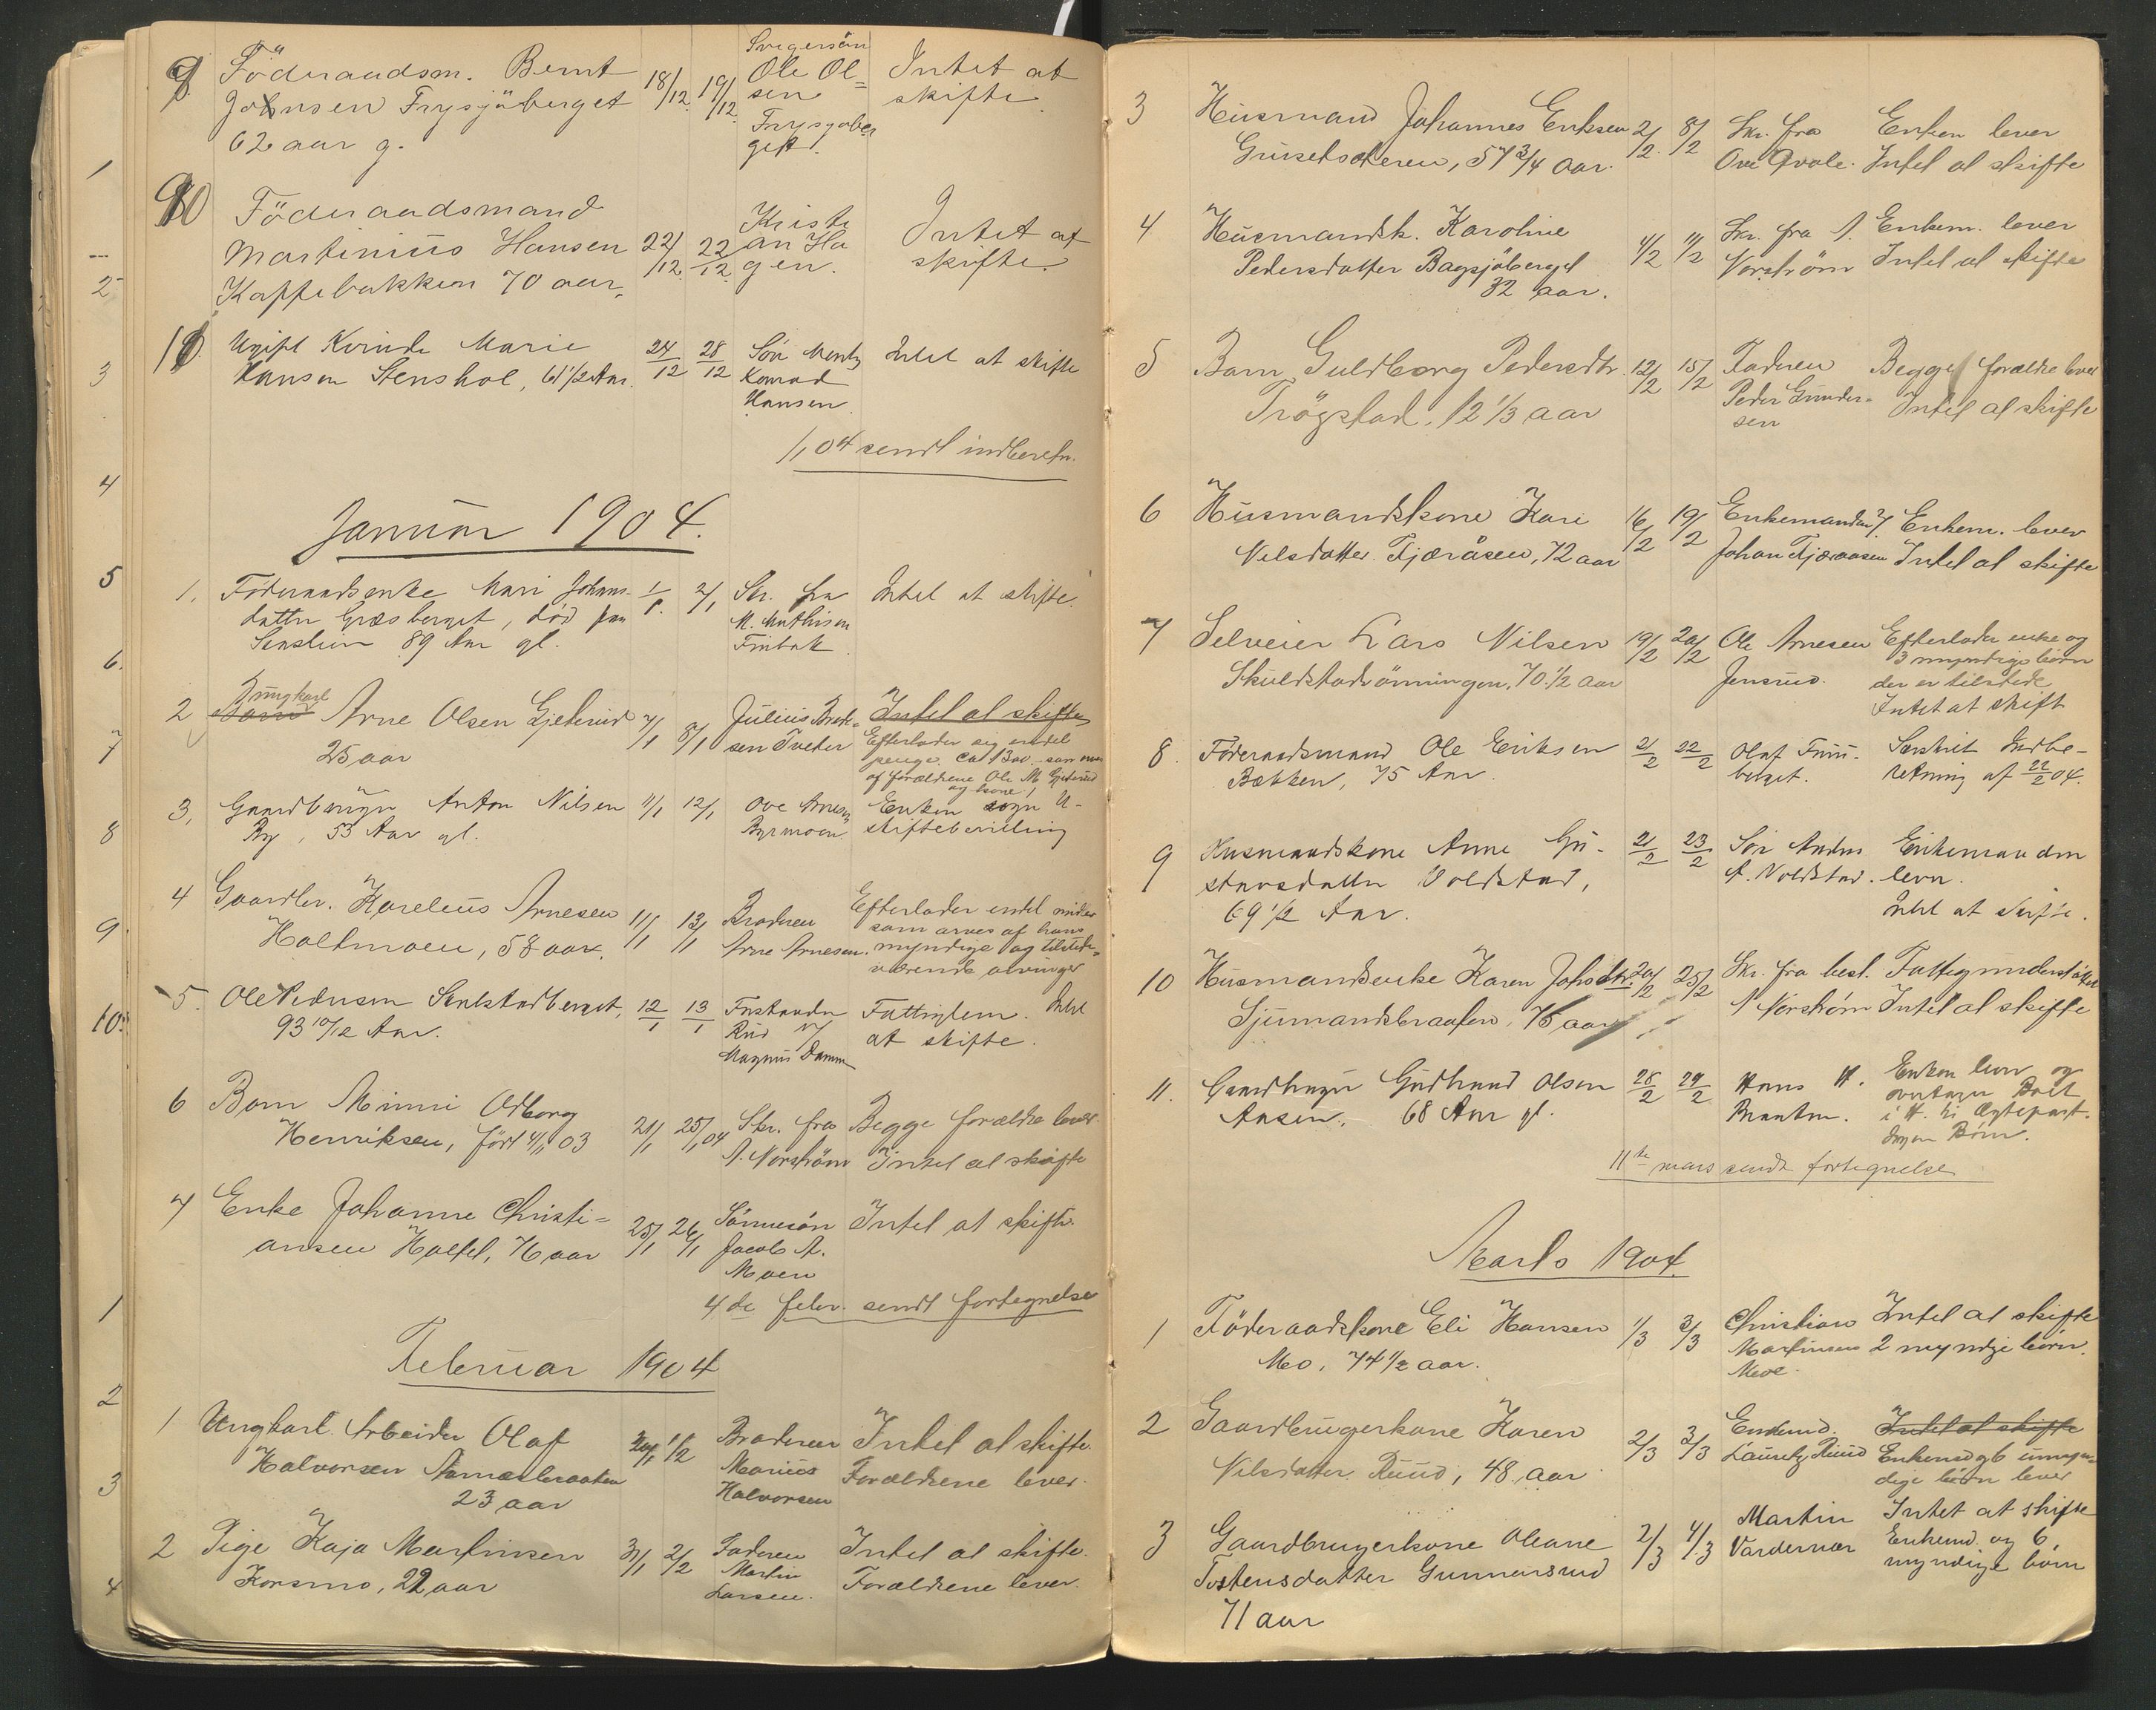 9 Föderaadsm. Bernt 18/12 19/12 Svigersön Intet at
Johnsen Frysjöberget Ole Ol= skifte.
62 aar g. sen
Frysjöber
get.
10 Föderaadsmand Kristi
Martinius Hansen 22/12 22/12 an Ha Intet at
Kaffebakken 70 aar, gen. skifte.
11 Ugift Kvinde Marie 24/12 28/12 Sön Mentz Intet at skifte
Hansen Stenshol, 61 1/2 Aar. Konrad
Hansen
1/1 04 sendt indberetn.
Januar 1904.
1. Föderaadsenke Mari Johans- 1/1. 2/1 Skr. fra Intet at skifte.
datter Græsberget, död paa M. Mathisen
89 Aar gl. Finbak
2 Ungkarl
Arne Olsen Gjeterud 7/1 8/1 Julius Intet at skifte
25 aar sen Tveter Efterlader sig endel
penge ca. 1300.- som
af forældrene Ole M. Gjeterud
og kone!
3. Gaardbruger Anton Nilsen 11/1 12/1 Ove Arnes. Enken U-
By, 53 Aar gl. Byrmoen skiftebevilling
4 Gaardbr. Karelius Arnesen 11/1 13/1 Broderen Efterlader endel midler
Holtmoen, 58 aar. Arne Arnesen. som arves af hans
myndige og tilstede=
værende arvinger
5. Ole Pedersen 12/1 13/1 Fattiglem. Intet
93 10/12 Aar. Rud at skifte.
Magnus Damm
6 Barn Minni Odborg
Henriksen, född 4/11 03 21/1 25/1 04 Skr. fra Begge forældre lever.
A. Norström Intet at skifte
7 Enke Johanne Christi= 25/1 26/1 Sönnesön Intet at skifte.
ansen Holtet, 76 aar Jacob A.
Moen
4de febr. sendt fortegnelse
Februar 1904
1 Ungkarl. Arbeider Olaf 1/2 Broderen Intet at skifte.
Halvorsen Marius Forældrene lever.
23 aar Halvorsen
2 Pige Kaja Martinsen 31/1 2/2 Faderen Intet at skifte.
Korsmo, 22 aar Martin Forældrene lever.
Larsen.
3 Husmand Johannes Eriksen 2/2. 8/2 Skr. fra Enken lever
Grusetsæteren, 57 3/4 aar. Ove Qvale. Intet at skifte
4 Husmandsk. Karoline Skr. fra A. Enkem. lever
Pedersdatter Bagsjöberget 4/2 11/2 Norström Intet at skifte
32 aar.
5 Barn Guldborg Pedersdtr. 12/2 15/2 Faderen Begge forældre lever
Trögstad, 12 1/3 aar Peder Gunder= Intet at skifte
sen
6 Husmandskone Kari 16/2 19/2 Enkemanden Enkem. lever
Nilsdatter Fjæråsen, 72 aar Johan Fjæraasen Intet at skifte
7 Selveier Lars Nilsen 19/2 20/2 Ole Arnesen Efterlader enke og
Skuldstadrönningen, 70 1/2 aar Jensrud. 3 myndige börn
der er tilstede
Intet at skift
8. Föderaadsmand Ole Eriksen 21/2 22/2 Olaf Særskilt Indbe-
Bækken, 75 Aar berget. retning af 22/2 04.
9 Husmandskone Anne Gu- 21/2 23/2 Sön Anders Enkemanden
stavsdatter Voldstad, A. Voldstad. lever.
69 1/2 Aar. Intet at skifte.
10 Husmandsenke Karen Johsdtr. 20/2 25/2 Skr. fra best. Fattigunderstöttet
Sjumandsbraaten, 75 aar A Norström Intet at skifte
11. Gaardbruger Gudbrand Olsen 28/2 29/2 Hans H. Enken lever og
Aasen, 68 Aar gl. Branten. overtager Boet
Ægtepagt.
Ingen Börn.
11te mars sendt fortegnelse
Marts 1904.
1 Föderaadskone Eli Hansen 1/3 3/3 Christian Intet at skifte
Mo, 74 1/2 aar. Martinsen 2 myndige börn.
Moe.
2 Gaardbrugerkone Karen 2/3 3/3 Enkemd. Intet at skifte
Nilsdatter Ruud, 48 aar Lauritz Ruud Enkemd og 6 umyn=
dige börn lever
3 Gaardbrugerkone Oleane 2/3 4/3 Martin Intet at skifte
Tostensdatter Gunnarsrud Vardernær Enkemd. og 6
71 aar myndige börn